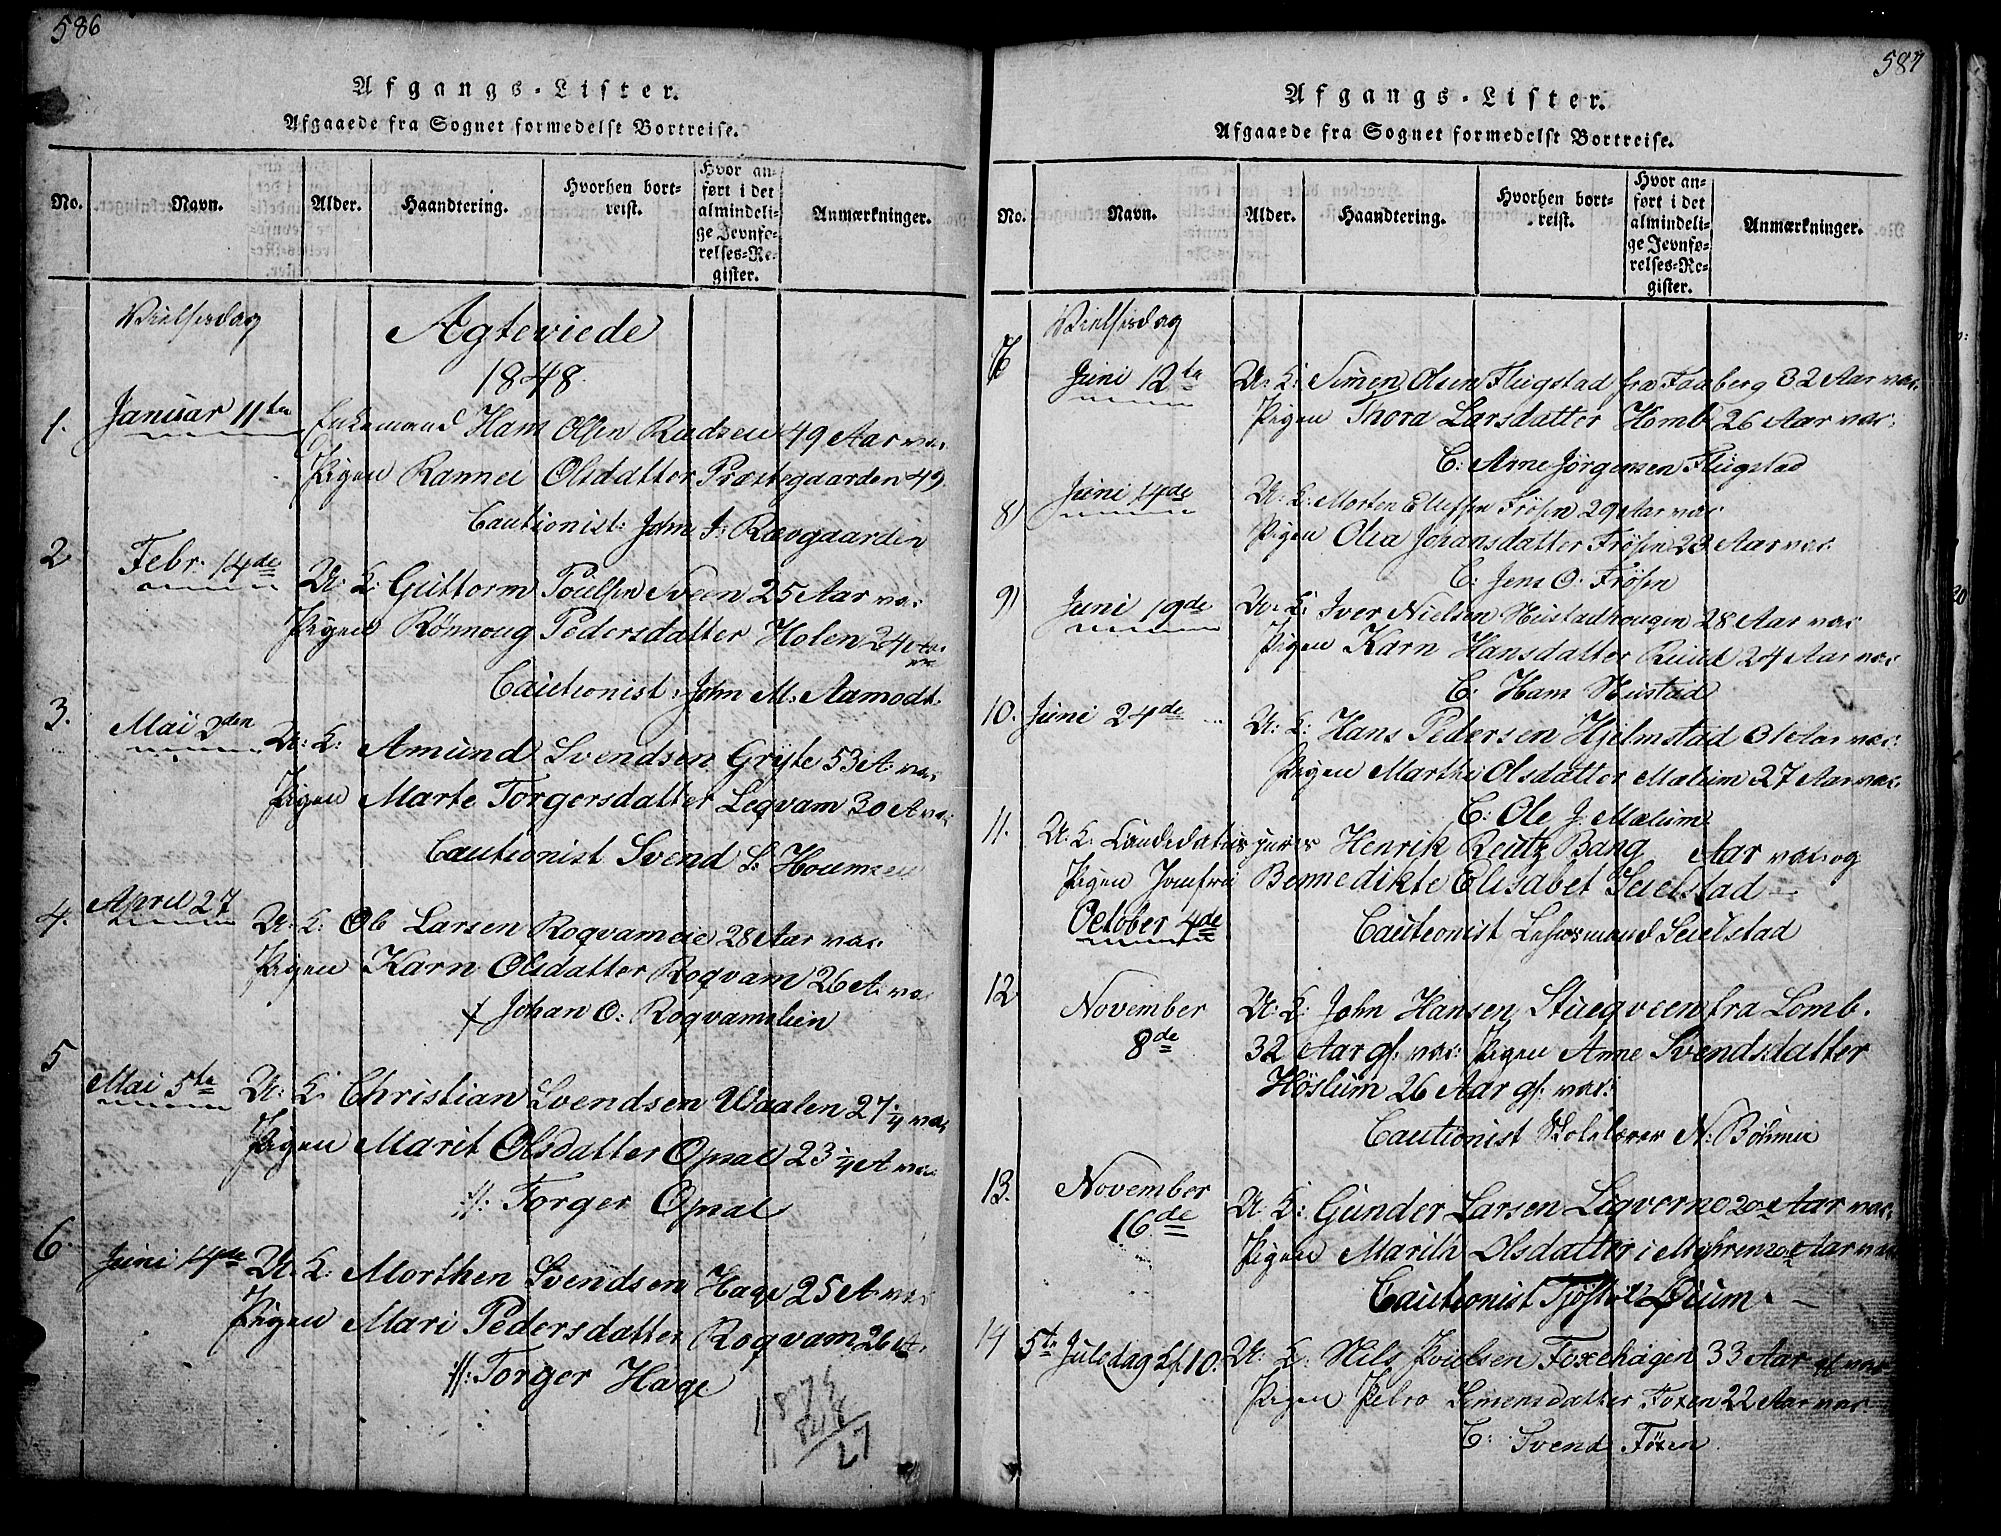 586
Afgangs-Lister.
Afgaaede fra Sognet formedelst Bortreise.
No. Navn. Alder. Haandtering. Hvorhen bortreist. Hvor anført i det almindelige Jevnførelses-Register. Anmærkninger.
Vielsesdag
Agteviede
1848.
1. Januar 11te Enkemand Hans Olsen Rudsen 49 Aar vac
Pigen Rannei Olsdatter Præstegaarden 49.
Cautionist: John J: Rævgaarden
2 Febr. 14de U: K: Guttorm Poulsen Sveen 25 Aar vac
Pigen Rönnoug Pedersdatter Holen 24
Cautionist: John M. Aamodt.
3. Mai 2den U: K: Amund Svendsen Gryte 53 A vac
Pigen Marte Torgersdatter Leqvam 30 A vac
Cautionist Svend
4. April 27 U: K: Ole Larsen Roqvam 28 Aar vac.
Pigen Karn Olsdatter Roqvam 26 A. vac
Johan O: Roqvamslien
5 Mai 5te U: K: Christian Svendsen Waalen 27 1/4 vac
Pigen Marit Olsdatter Opsal 23 1/4 A vac.
://: Torger Opsal
6. Juni 14de U: K: Morthen Svendsen Hage 25 A vac
Pigen Mari Pedersdatter Roqvam 26 A.
://: Torger Hage
1874
1848
27
587
Afgangs-Lister.
Afgaaede fra Sognet formedelst Bortreise.
No. Navn. Alder. Haandtering. Hvorhen bortreist. Hvor anført i det almindelige Jevnførelses-Register. Anmærkninger.
Vielsesdag
7 Juni 12te U: K: Simen Olsen Flugstad fra Faaberg 32 Aar vac.
Pigen Thora Larsdatter Homb 26 Aar vac:
C: Arne Jörgensen Flugstad
8) Juni 14de U: K: Morten Ellefsen Frösen 29 Aar vac
Pigen Olea Johansdatter Frösen 23 Aar vac.
C: Jens O. Frösen
9) Juni 19de U: K: Iver Nielsen Nustadhougen 28 Aar vac
Pigen Karn Hansdatter Ruud 24 Aar vac
C: Hans Nustad
10. Juni 24de U: K: Hans Pedersen Hjelmstad 31 Aar vac:
Pigen Marthe Olsdatter Mælum 27 Aar vac.
C: Ole J. Mælum
11. U: K: Candidatus juris Henrik Reutz Bang Aar vac og
Pigen Jomfru Bennedikte Elisabet Seielstad
October 4de Cautionist Lehnsmand Seielstad
12 November U: K: John Hansen Stuegveen fra Lomb.
8de 32 Aar gl. vac: Pigen Anne Svendsdatter
Höslum 26 Aar gl. vac:
Cautionist Skolelærer N: Böhmer
13. November U: K: Gunder Larsen Leqverne 20 Aar vac:
16de Pigen Marith Olsdatter i Myhren 20 Aar vac
Cautionist Tjöstel Öium
14 5te Juledag Kl 10. U: K: Nils Poulsen Foxehagen 33 Aar gl. vac
Pigen Petro Simensdatter Foxen 22 Aar vac
C: Svend Föxen